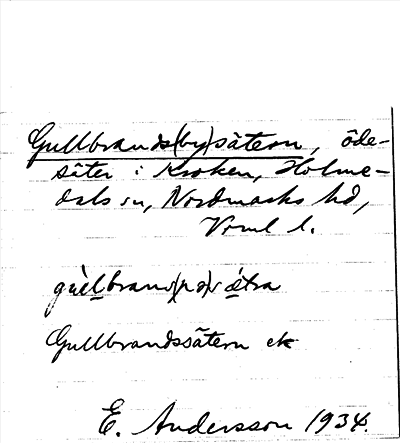 Gullbrands(by)sätern, öde-
säter i Kroken, Holme-
dals sn, Nordmarks hd,
Vrml l.
Gullbrandssätern ek
E. Andersson 1934.